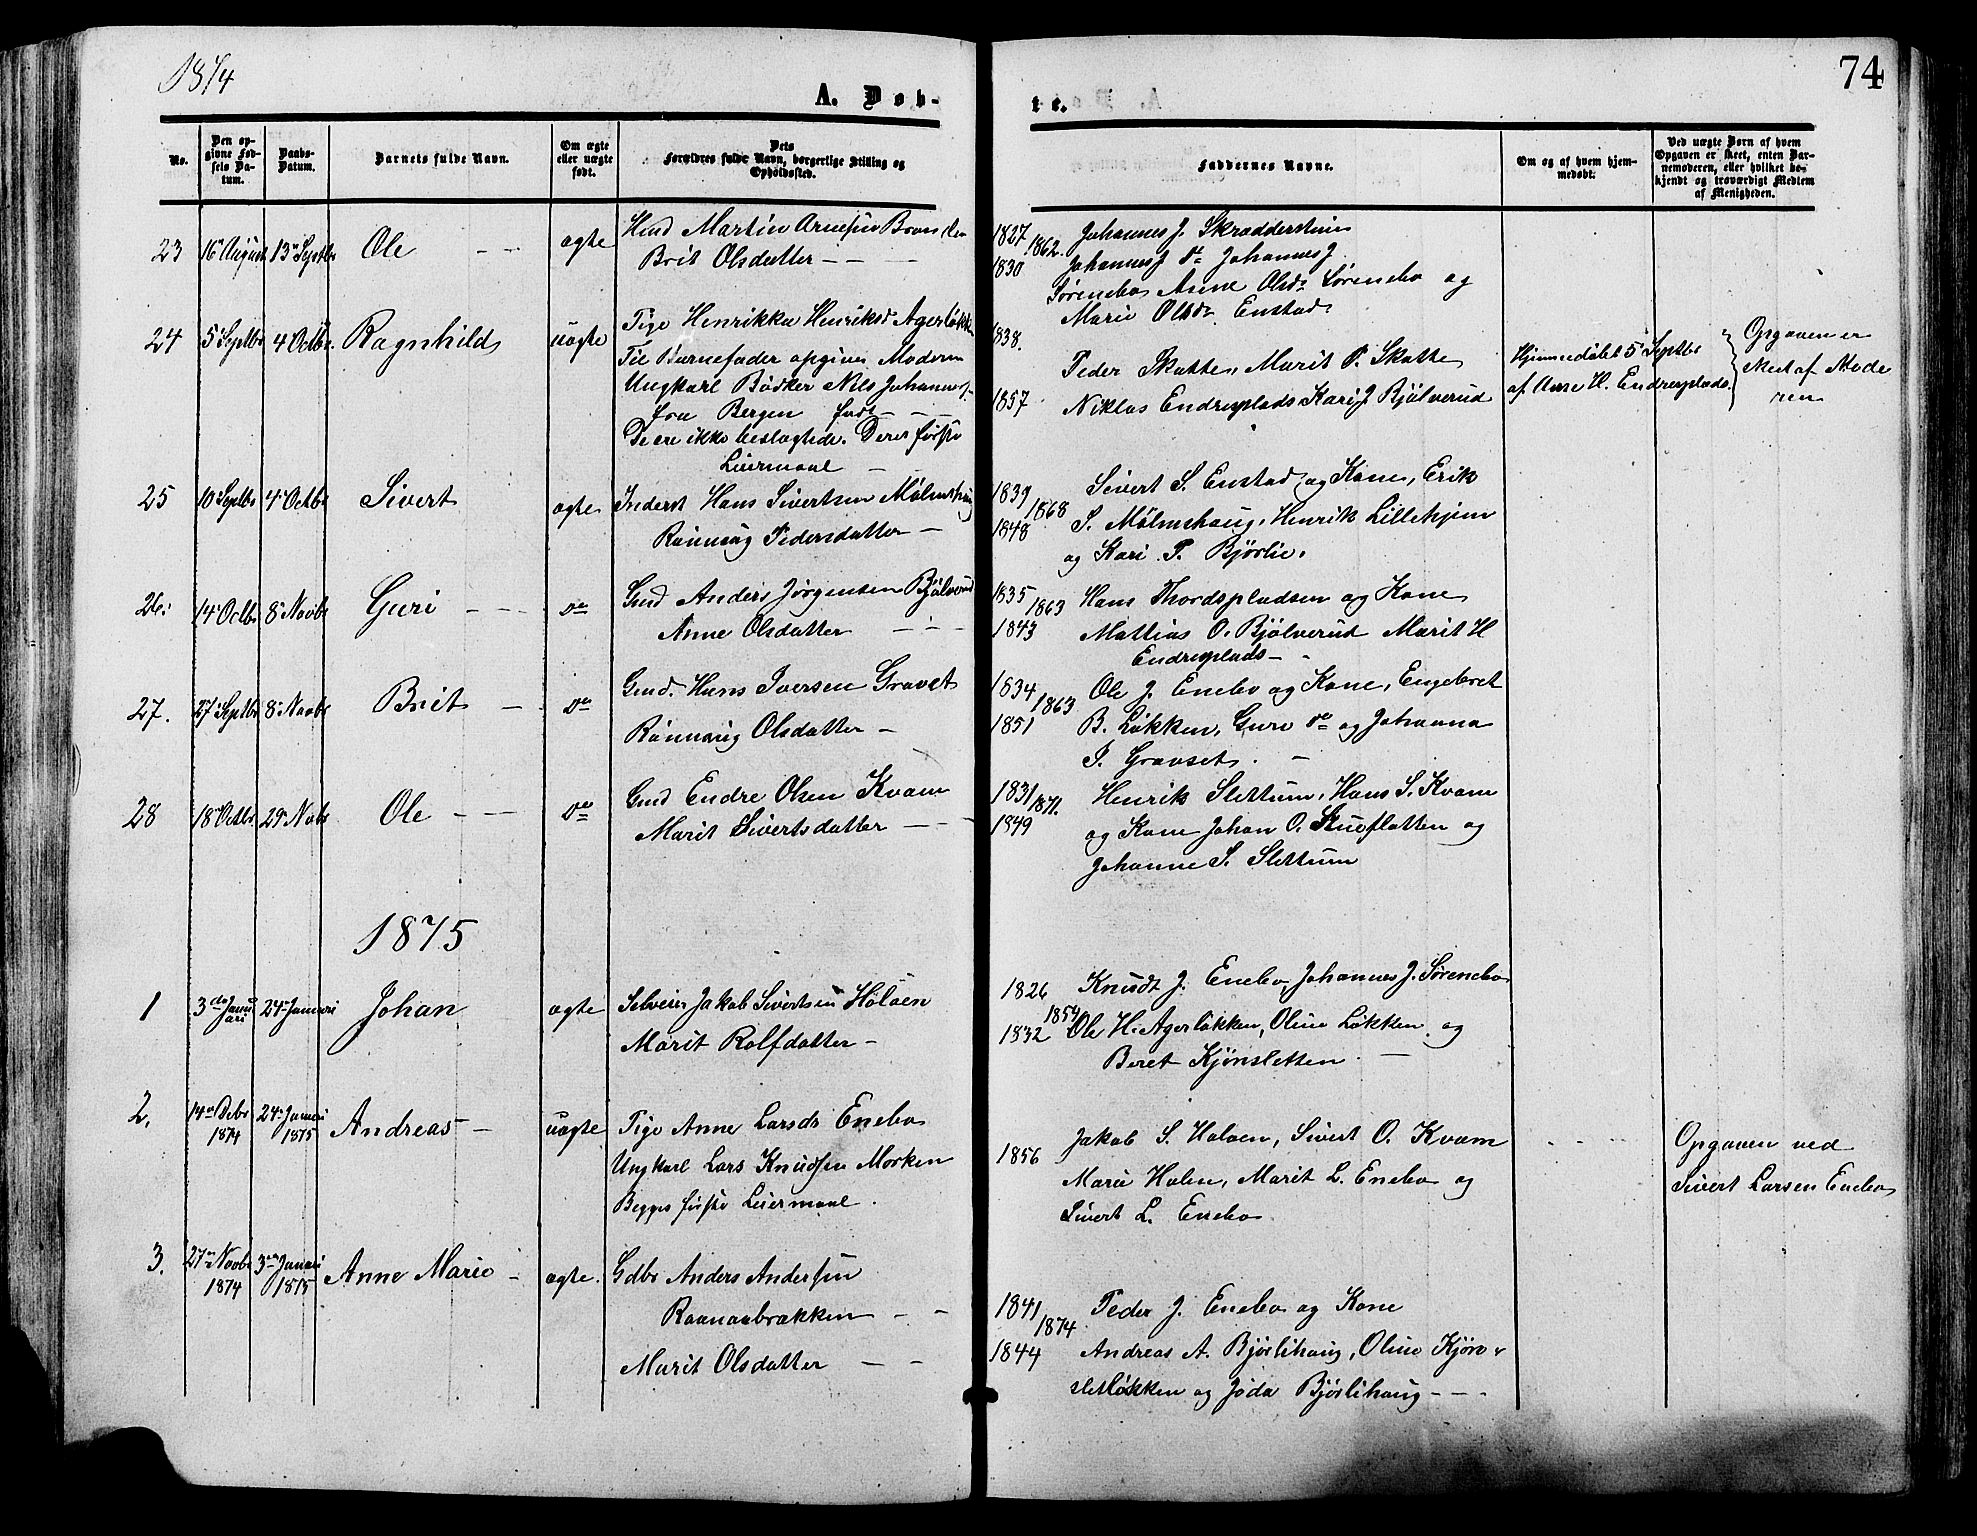 1874
74
A. Døb-
te.
No.
Den op-
givne Fød-
sels Da-
tum.
Daabs-
Datum.
Barnets fulde Navn.
Om ægte
eller uægte
født.
Dets
Forældres fulde Navn, borgerlige Stilling og
Opholdssted.
Faddernes Navne.
Om og af hvem hjem-
medøbt.
Ved uægte Børn af hvem
Opgaven er skeet, enten Bar-
nemoderen, eller hvilket be-
kjendt og troværdigt Medlem
af Menigheden.
23 16 August 13 Septbr Ole - - ægte
Martin Arnesen
Brit Olsdatter - - -
1827 1862 1830
Johannes J. Skrædderstuen
Johannes J do Johannes J.
Sørenebo Anne Olsdr Sørenebo og
Marie Olsdr Enstad
24 5 Septbr 4 Octbr. Ragnhild uægte
Pige Henrikka Henriksd Agerløkken
Til Barnefader opgives Moderen
Ungkarl Bødker Nils Johannes-
fra Bergen født - - -
De ere ikke beslægtede. Deres første
Leiermaal -
1838.
1857
Peder Skotte, Marit P. Skotte
Niklas Endresplads Kari J Bjølverud
Hjemmedøbt 5 Septbr
af Anne H. Endresplads.
Opgaven er
skeet af Mode
ren
25 10 Septbr 4 Octbr Sivert ægte
Inderst Hans Sivertsen Mølmshaug
Rønnaug Pedersdatter -
1839 1868 1848
Sivert S. Enstad og Kone, Erik
S. Mølmshaug, Henrik Lillehjem
og Kari P. Bjørlie.
26. 14 Octbr 8 Novbr Guri - - - do
Gmd Anders Jørgensen Bjølverud
Anne Olsdatter - - -
1835 1863 1843
Hans Thordspladsen og Kone
Mattias O. Bjølverud Marit H
Endresplads - -
27. 27 Septbr 8 Novbr Brit - do
Gmd. Hans Iversen Gravset
Rønnaug Olsdatter -
1834 1863 1851
Ole J. Enebo og Kone, Engebret
B. Løkken, Guri do og Johanna
I. Gravset. -
28 18 Octbr 29 Novbr Ole - - do
Gmd Endre Olsen Kvam
Marit Sivertsdatter - - -
1831 1871. 1849
Henrik Slettum, Hans S. Kvam
og Kone Johan O. Stueflotten og
Johanne S. Slettum
1875
1 3die Janu
ari 24 Januari Johan ægte
Selveier Jakob Sivertsen Holøen
Marit Rolfdatter -
1826 1854 1832
Knudt J. Enebo, Johannes J. Sørenebo
Ole H. Agerløkken, Oline Løkken og
Beret Kjønsletten. -
2. 14 Debr
1874 24 Januari
1875 Andreas - uægte
Pige Anne Larsdr Enebo
Ungkarl Lars Knudsen Morken
Begges første Leiermaal.
1856
Jakob S. Holøen, Sivert O. Kvam
Mari Holen, Marit L. Enebo og
Sivert L. Enebo
Opgaven ved
Sivert Larsen Enebo
3. 27 Novbr
1874 3 Januari
1875 Anne Marie - ægte.
Gdbr Anders Andersen
Raanaabrækken - -
Marit Olsdatter - -
1841 1874 1844
Peder J. Enebo og Kone
Andreas A. Bjørlihaug, Oline Kjøn-
sletløkken og Jøda Bjørlihaug - - -